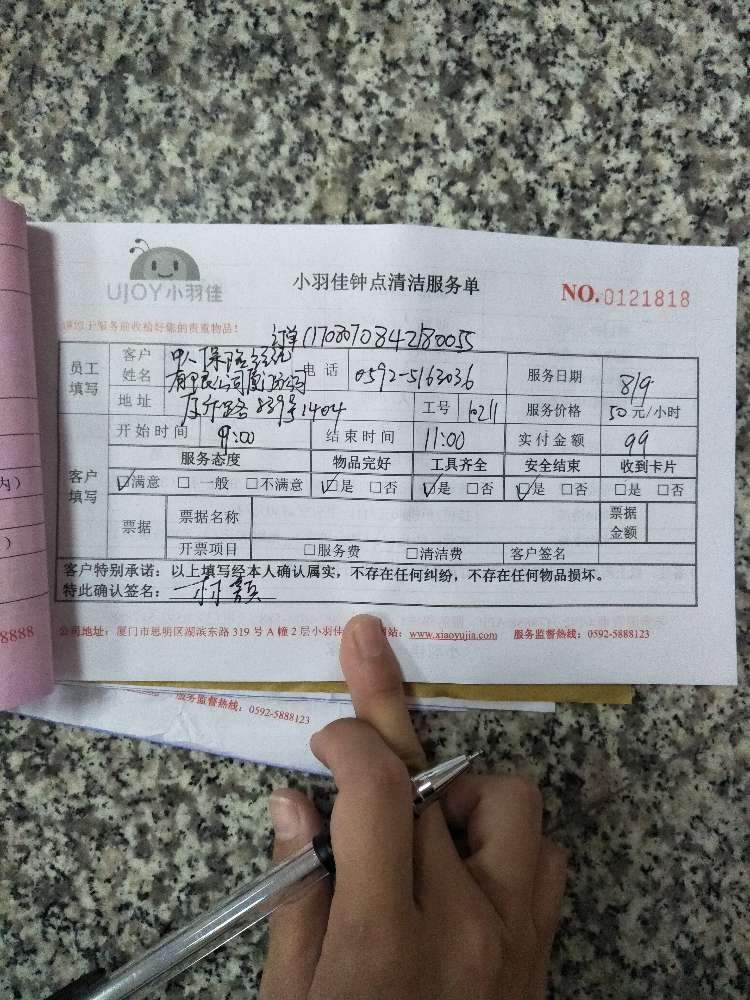 UJOY小羽佳
小羽佳钟点清洁服务单
NO.0121818
请您于服务前收拾好您的贵重物品!
订单11708070842180055
员工填写 客户姓名 中人保险经纪有限公司厦门分公司 电话 0592-5163036 服务日期 8/9
地址 839号1404 工号 10211 服务价格 50元/小时
客户填写 开始时间 9:00 结束时间 11:00 实付金额 99
服务态度 物品完好 工具齐全 安全结束 收到卡片
☑满意 □一般 □不满意 ☑是 □否 ☑是 □否 ☑是 □否 □是 □否
票据 票据名称 票据金额
开票项目 □服务费 □清洁费 客户签名
客户特别承诺：以上填写经本人确认属实，不存在任何纠纷，不存在任何物品损坏。
特此确认签名：
公司地址：厦门市思明区湖滨东路319号A幢2层小羽佳 站：www.xiaoyujia.com 服务监督热线：0592-5888123
8888
服务监督热线：0592-5888123
内）
）